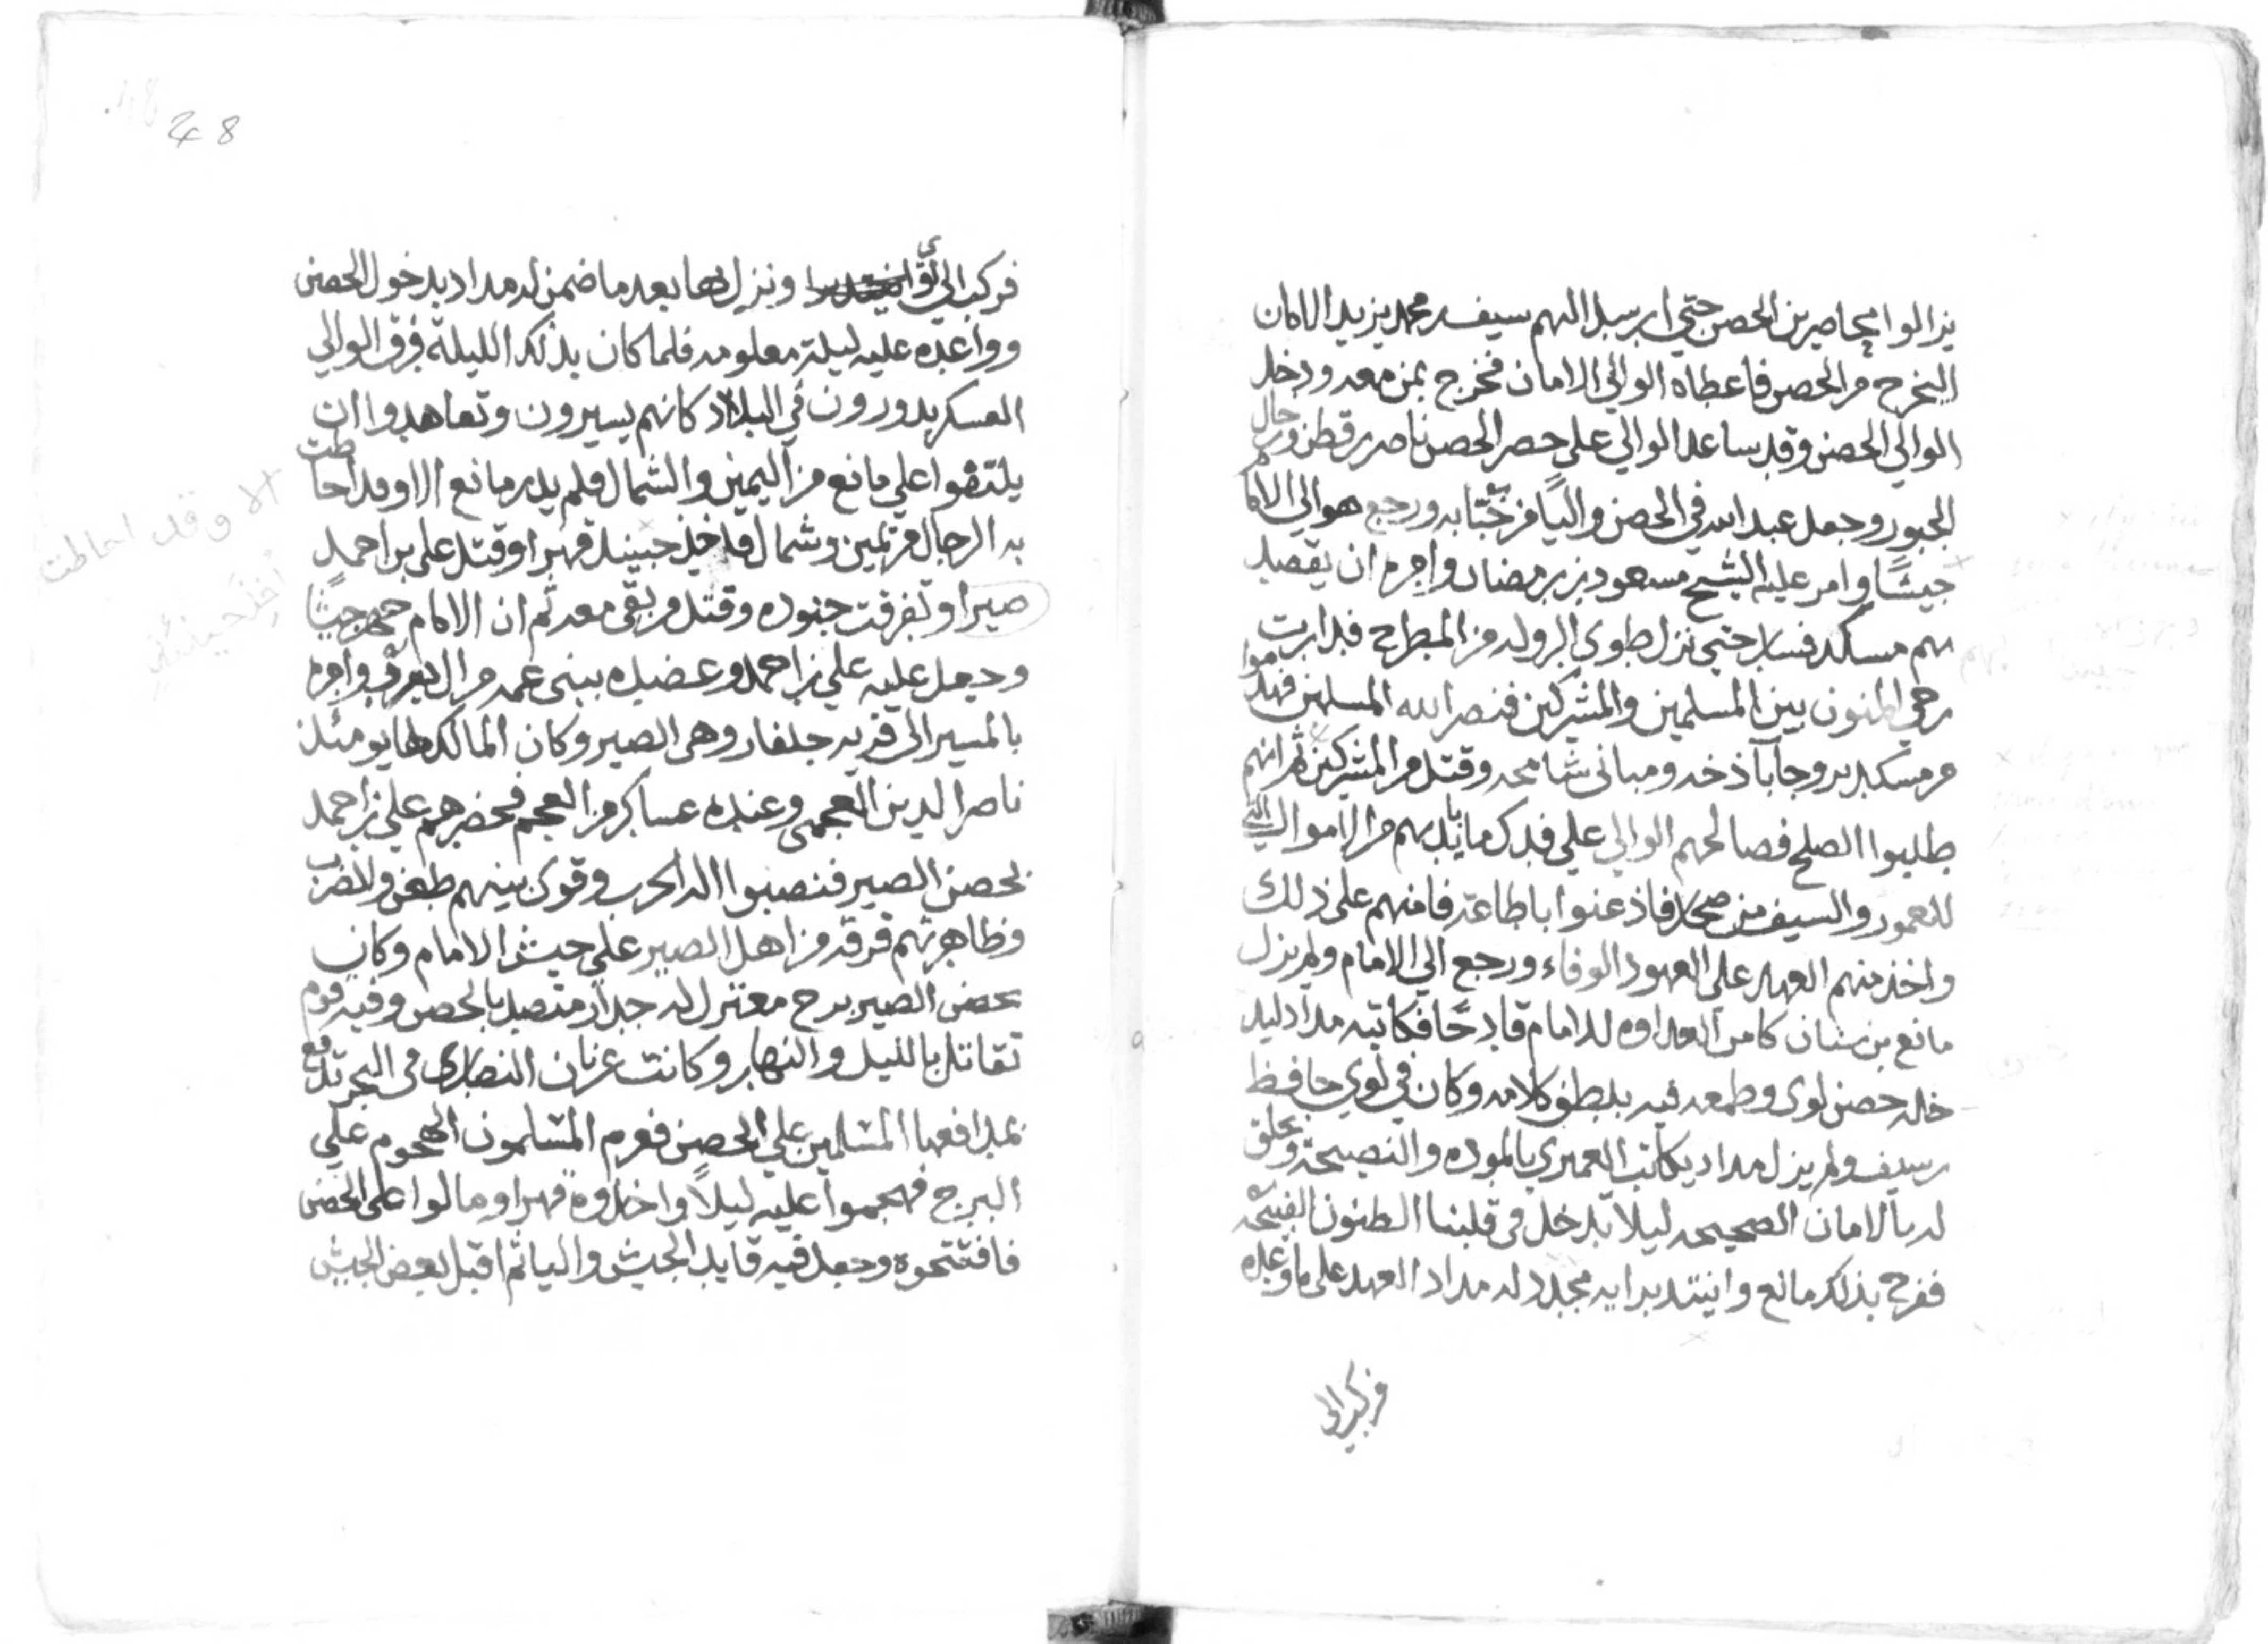 يزالوا محاصرين الحصن حتي ارسل اليهم سيف بن محمد يزيد الامان
اليخرج من الحصن فاعطاه الوالي الامان فخرج بمن معه ودخل
الوالي الحصن وقد ساعد الوالي علي حصر الحصن ناصر بن قطن ورجال
الجبور وجعل عبد الله في الحصن واليًا من جنابه ورجع هو الي الامام
جيشًا وامر عليه الشيخ مسعود بن رمضان وامره ان يقصد
بهم مسكد فسار حتي نزل طوى الرولة من المطرح فدارت
رحي المنون بين المسلمين والمشركين فنصر الله المسلمين فهدموا
من مسكد بروجا باذخه ومباني شامخه وقتل من المشركين ثم انهم
طلبوا الصلح فصالحهم الوالي علي فدك ما بايديهم من الاموال التي
للعمور والسيف من صحار فاذعنوا باطاعة فامنهم علي ذلك
واخذ منهم العهد على العهود الوفاء ورجع الي الامام ولم يزل
مانع بن سنان كامن العداوه للامام قادحًا فكاتبه مداد ليد
خله حصن لوى وطمعه فيه بلطف كلامه وكان في لوي حافظ
بن سيف ولم يزل مداد يكاتب العميري بالموده والنصيحة ويحلق
له بالامان الصحيحه ليلا يدخل في قلبنا الظنون القبيحه
ففرح بذلك مانع وانيتد برايه مجدد له مداد العهد على ما وعده
فركب الي
48
فركب الي لوّى ونزل بها بعد ما ضمن له مداد بدخول الحصن
وواعده عليه ليلة معلومه فلما كان بذلك الليلة فرق الوالي
العسكر يدورون في البلاد كانهم يسيرون وتعاهدوا ان
يلتقوا علي مانع من اليمين والشمال فلم يدر مانع الا وقد احاطت
به الرجال من يمين وشمال فاخذ حينيذ قهرا وقتل علي بن احمد
صبرا وتفرقت جنوده وقتل من بقي معه ثم ان الامام جهز جيشًا
وجعل عليه علي بن احمد وعضده ببني عمه من ال يعرب وامره
بالمسير الى قريه جلفار وهى الصير وكان المالك لها يومئذ
ناصر الدين العجمى وعنده عساكر من العجم فحضرهم علي بن احمد
بحصن الصير فنصبوا اله الحرب وقوى بينهم طعن والضرب
وظاهرتهم فرقة من اهل الصير علي جيش الامام وكان
بحصن الصير برج معتزل له جدار متصل بالحصن وفيه قوم
تقاتل بالليل والنهار وكانت غربان النصارى في البحر تدفع
بمدافعها المسلمين علي الحصن فعزم المسلمون الهجوم علي
البرج فهجموا عليه ليلاً واخذوه قهرا ومالوا على الحصن
فافتتحوه وجعل فيه قايد الجيش واليا ثم اقبل بعض الجيش
الا وقد احاطت
أخذ حينئذ